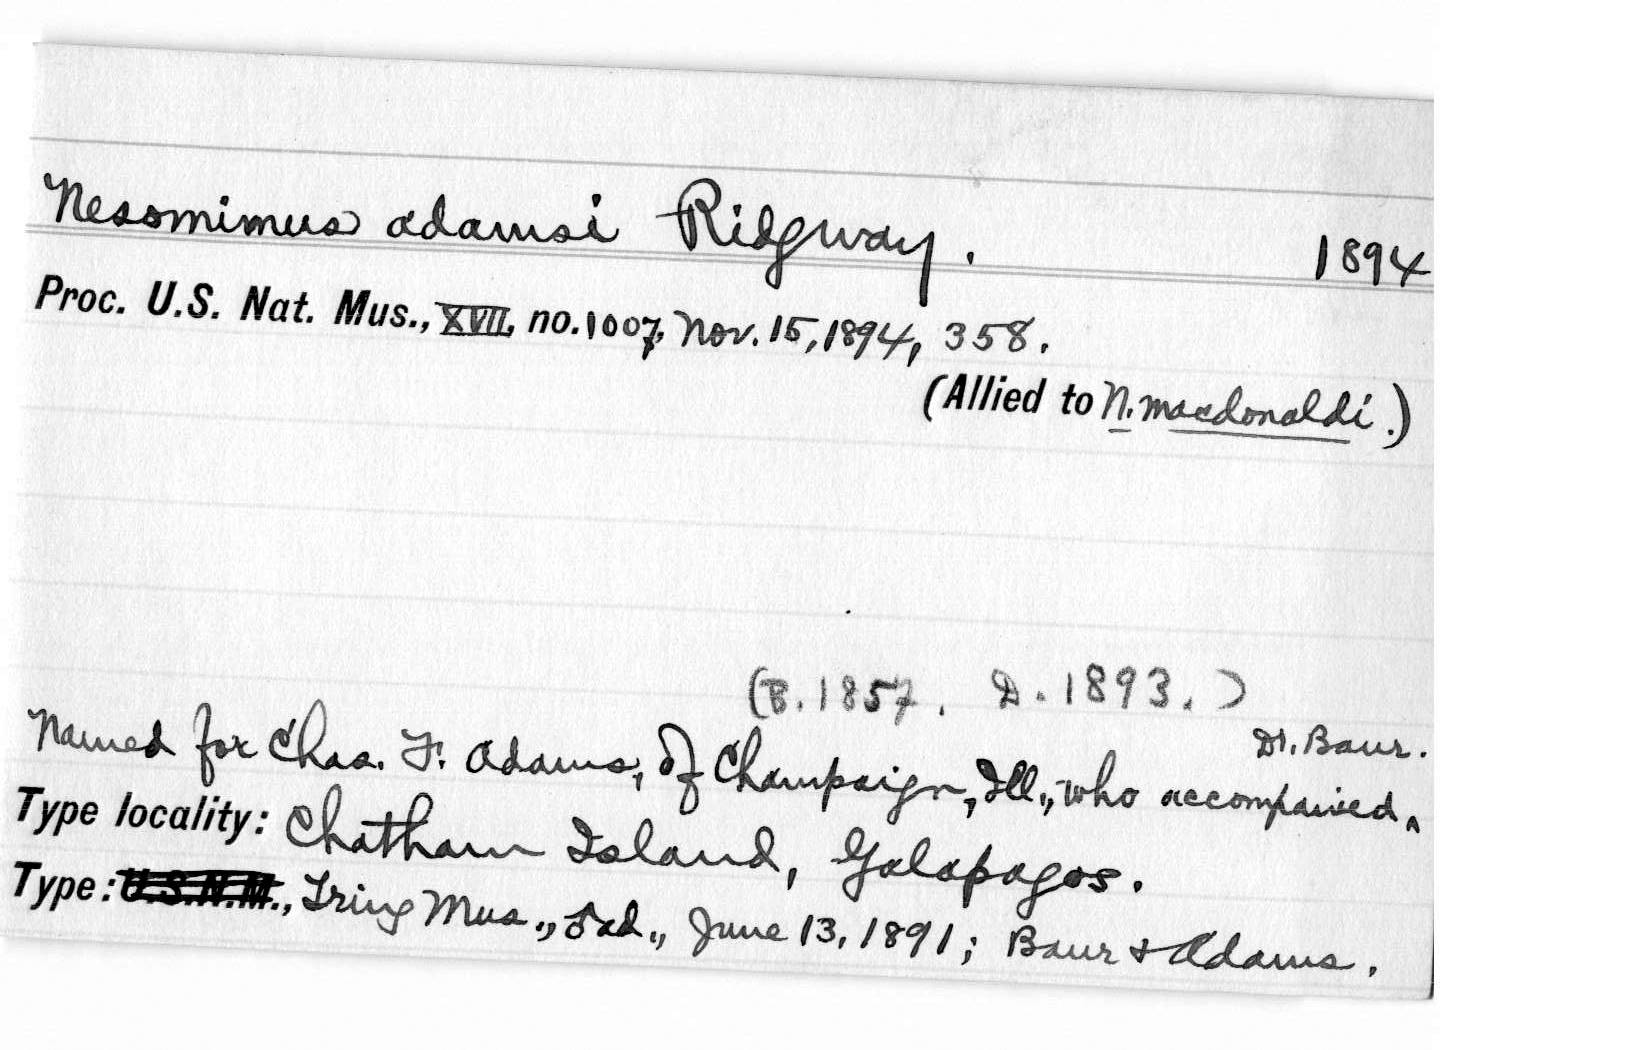 Nesomimus adamsi Ridgway. 1894
Proc. U.S. Nat. Mus., XVII, no. 1007, Nov. 15, 1894, 358.
(Allied to N. macdonaldi.)
(B. 1857. D. 1893.)
Dr. Baur.
Named for Chas. F. Adams, of Champaign, Ill., who accompanied ^
Type locality: Chatham Island, Galapagos.
Type: U.S.N.M., Tring Mus., ♂ ad., June 13, 1891; Baur & Adams.